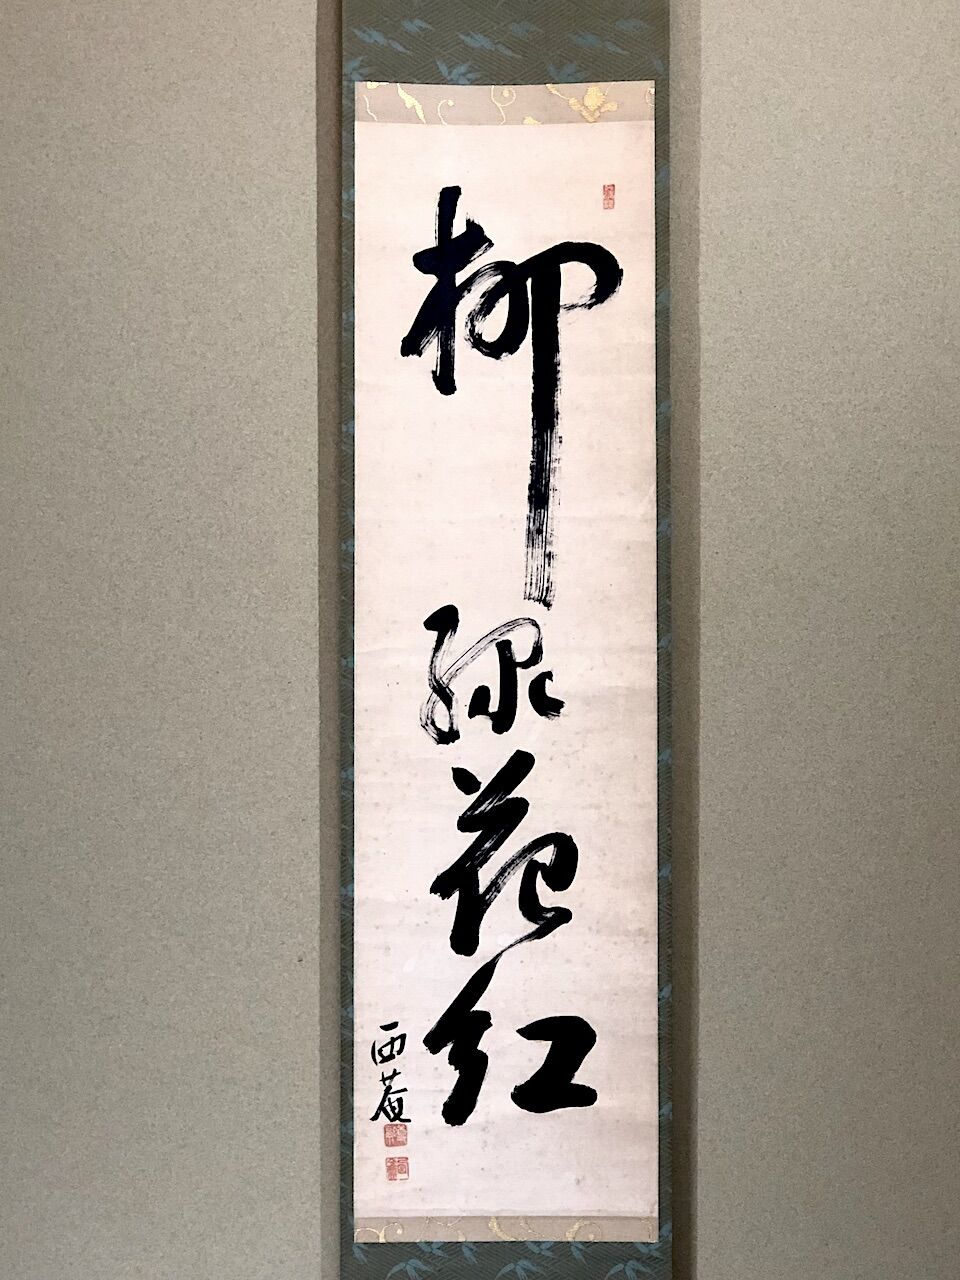 柳緑花紅
西菴